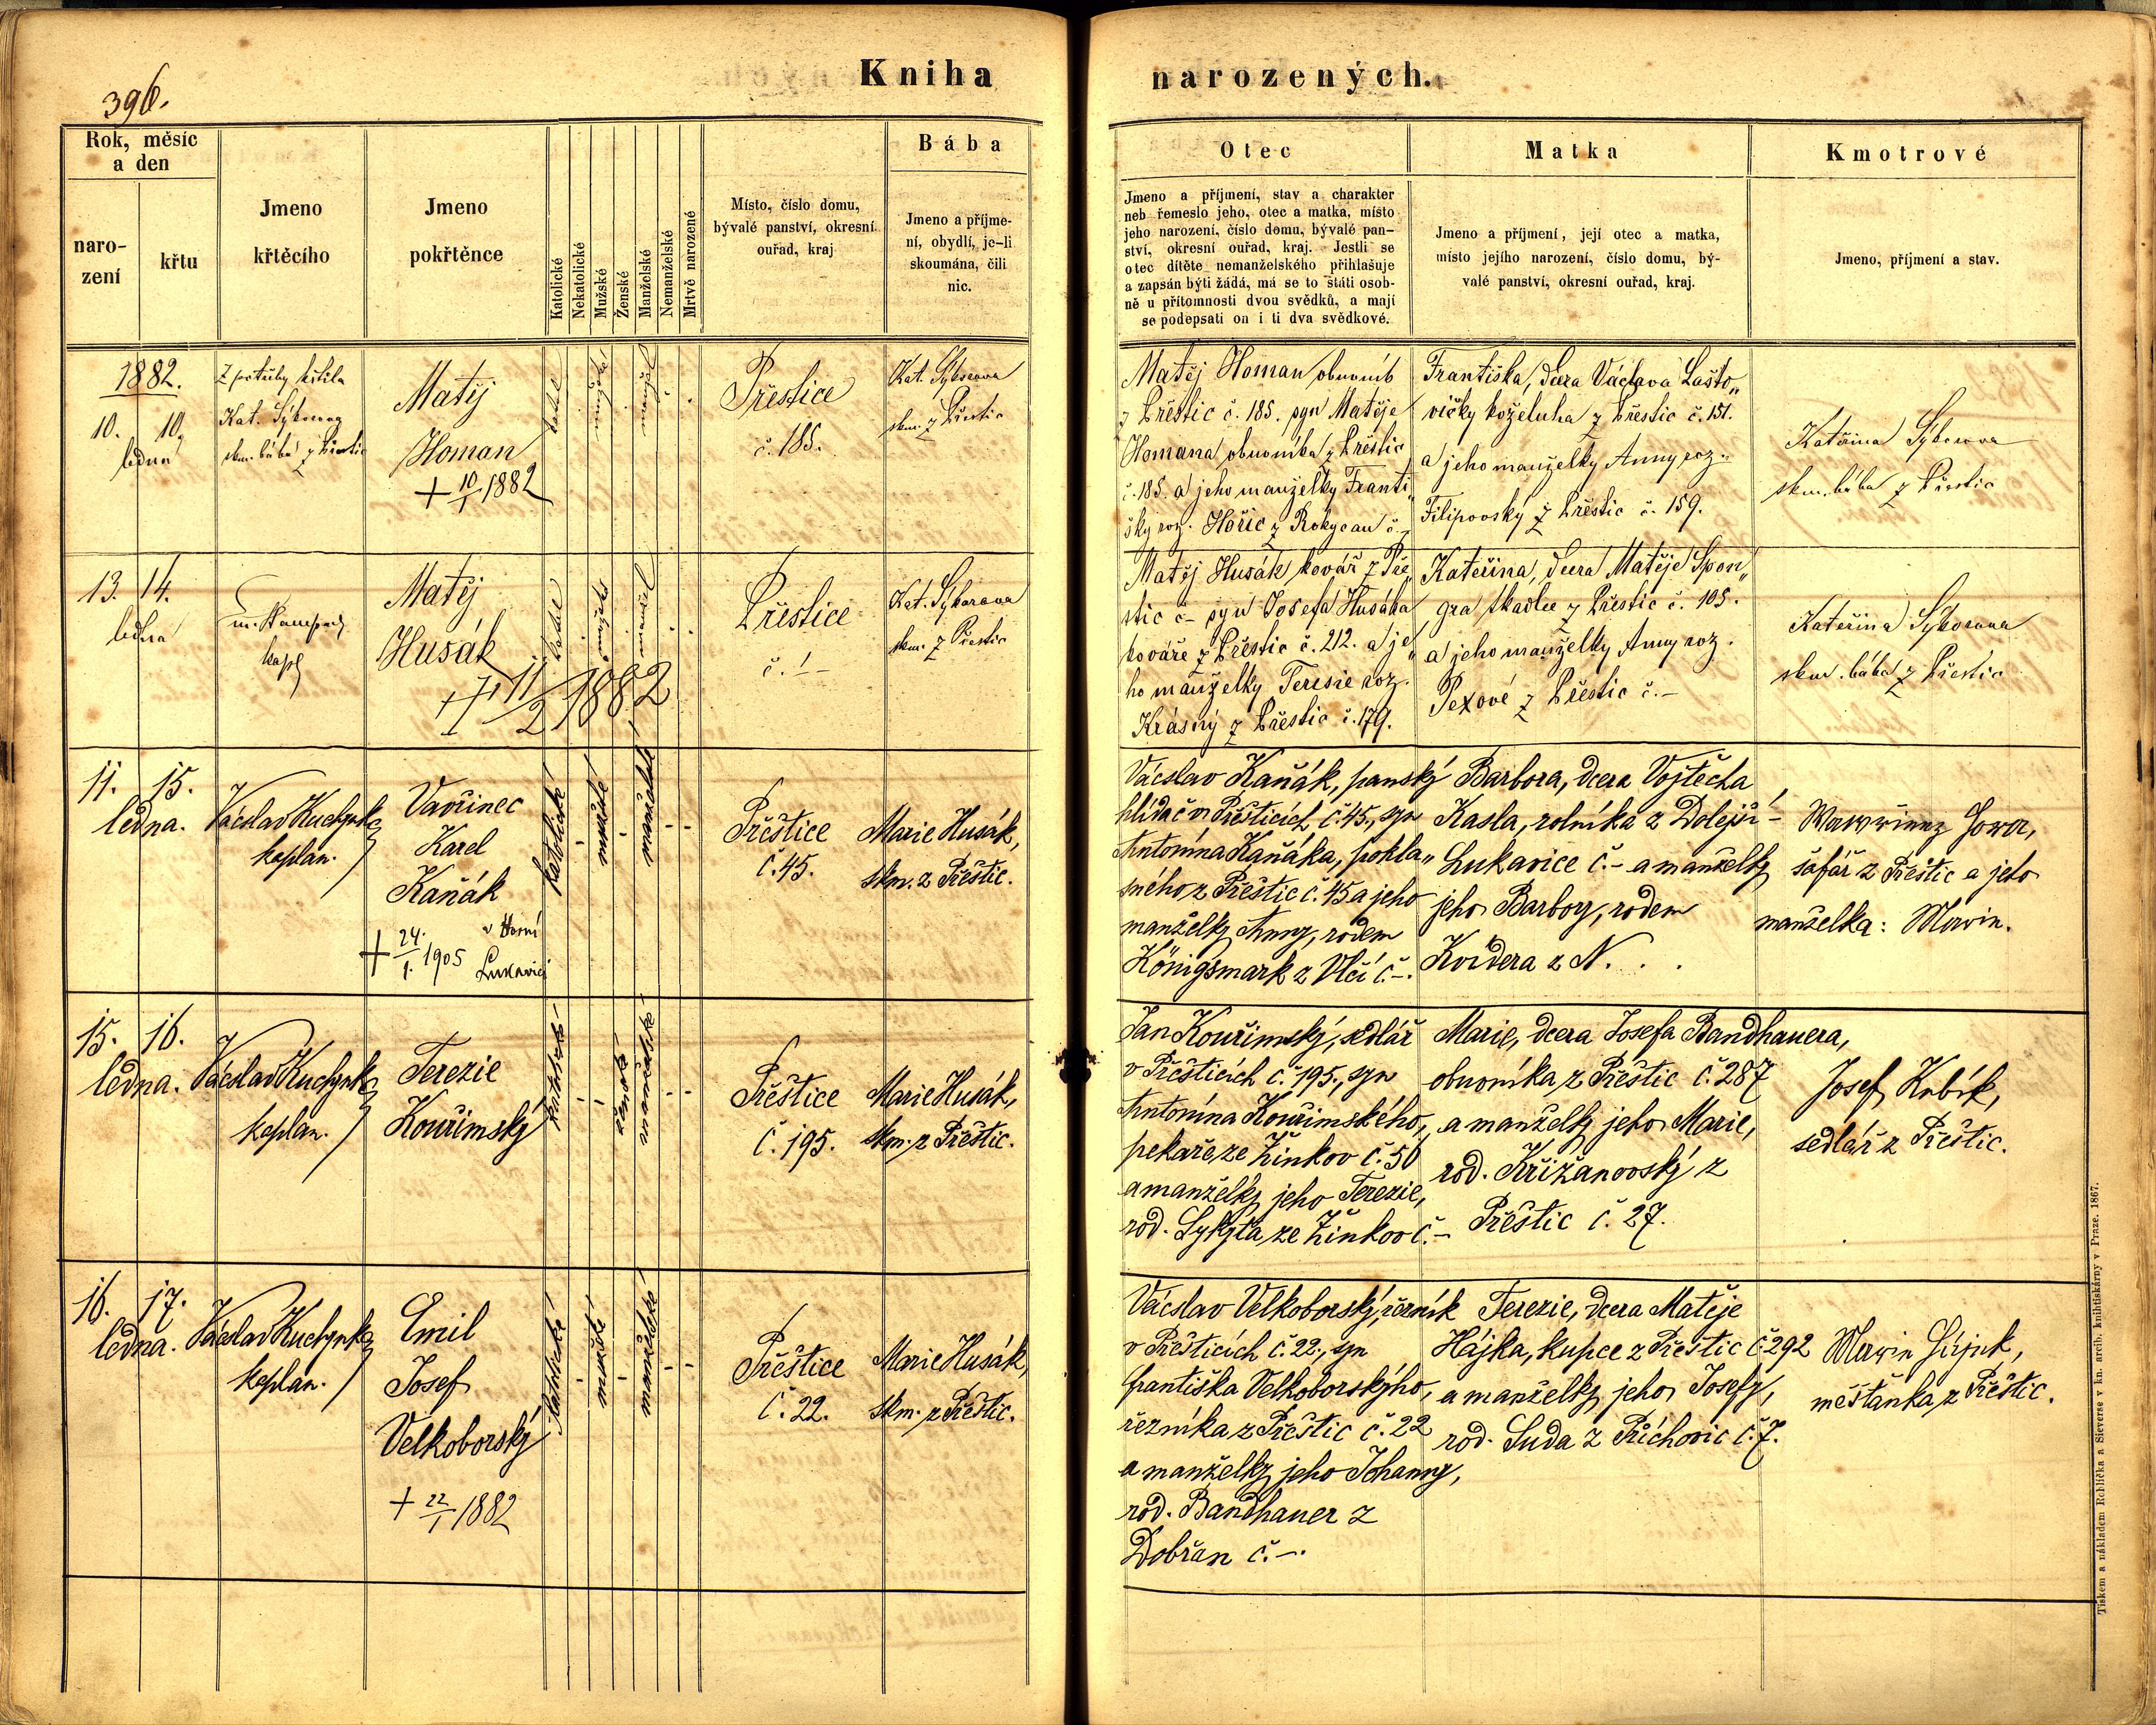 396.
Kniha narozených.
Rok, měsíc
a den
naro-
zení
křtu
Jmeno
křtěcího
Jmeno
pokřtěnce
Katolické
Nekatolické
Mužské
Ženské
Manželské
Nemanželské
Mrtvě narozené
Místo, číslo domu,
bývalé panství, okresní
ouřad, kraj
Bába
Jmeno a příjme-
ní, obydlí, je-li
skoumána, čili
nic.
Otec
Jmeno a příjmení, stav a charakter
neb řemeslo jeho, otec a matka, místo
jeho narození, číslo domu, bývalé pan-
ství, okresní ouřad, kraj. Jestli se
otec dítěte nemanželského přihlašuje
a zapsán býti žádá, má se to státi osob-
ně u přítomnosti dvou svědků, a mají
se podepsati on i ti dva svědkové.
Matka
Jmeno a příjmení, její otec a matka,
místo jejího narození, číslo domu, bý-
valé panství, okresní ouřad, kraj.
Kmotrové
Jmeno, příjmení a stav.
1882.
10. 10.
ledna
Z potřeby křtila
Kat. Sýkorova
skm. bába z Přestic
Matěj
Homan
+ 10/1 1882
Přestice
č. 185.
Kat. Sykorova
skm. z Přestic
Matěj Homan obuvník
z Přestic č. 185. syn Matěje
Homana obuvníka z Přestic
č. 185. a jeho manželky Franti„
šky roz. Hořic z Rokycan č. –
Františka, dcera Václava Lašto„
vičky koželuha z Přestic č. 151.
a jeho manželky Anny roz.
Filipovsky z Přestic č. 159.
Kateřina Sýkorova
skm. bába z Přestic
13. 14.
ledna
kapl
Matěj
Husák
+ 11/2 1882
Přestice
č. –
Kat. Sykorova
skm. z Přestic
Matěj Husák kovář z Pře„
stic č – syn Josefa Husáka
kováře z Přestic č. 212. a je„
ho manželky Teresie roz.
Krásný z Přestic č. 179.
Kateřina, dcera Matěje Špon„
gra tkadlce z Přestic č. 105.
a jeho manželky Anny roz.
Pexové z Přestic č. –
Kateřina Sykorova
skm. bába z Přestic
11. 15.
ledna.
Václav Kuchynka
kaplan.
Vavřinec
Karel
Kaňák
+ 24./1. 1905 v Horní
Lukavici
katolické
mužské
manželské
Přeštice
č. 45.
Marie Husák,
skm. z Přeštic.
Vácslav Kaňák, panský
hlídač v Přešticích č. 45., syn
Antonína Kaňáka, pokla„
sného z Přeštic č. 45 a jeho
manželky Anny, rodem
Königsmark z Vlčí č. –.
Barbora, dcera Vojtěcha
Kasla, rolníka z Dolejší
Lukavice č. – a manželky
jeho Barbory, rodem
Kvídera z N. . .
šafář z Přeštic a jeho
manželka:
15. 16.
ledna.
Václav Kuchynka
kaplan.
Terezie
Kouřimský
katolické
ženské
manželské
Přeštice
č. 195.
Marie Husák,
skm. z Přeštic.
Jan Kouřimský, sedlář
v Přešticích č. 195., syn
Antonína Kouřimského,
pekaře ze Žinkov č. 56
a manželky jeho Terezie,
rod. Sykyta ze Žinkov č. –
Marie, dcera Josefa Bandhauera,
obuvníka z Přeštic č. 287
a manželky jeho Marie,
rod. Křižanovský z
Přeštic č. 27.
Josef Kubík,
sedlář z Přeštic.
16. 17.
ledna.
Václav Kuchynka
kaplan.
Emil
Josef
Velkoborský
+ 22/1 1882
katolické
mužské
manželské
Přeštice
č. 22.
Marie Husák,
skm. z Přeštic.
Vácslav Velkoborský, řezník
v Přešticích č. 22., syn
Františka Velkoborského,
řezníka z Přeštic č. 22
a manželky jeho Johanny,
rod. Bandhauer z
Dobřan č. –.
Terezie, dcera Matěje
Hájka, kupce z Přeštic č. 292
a manželky jeho Josefy,
rod. Suda z Příchovic č. 7.
měšťanka z Přeštic.
Tiskem a nákladem Rohlíčka a Sieverse v kn. arcib. knihtiskárny v Praze. 1867.